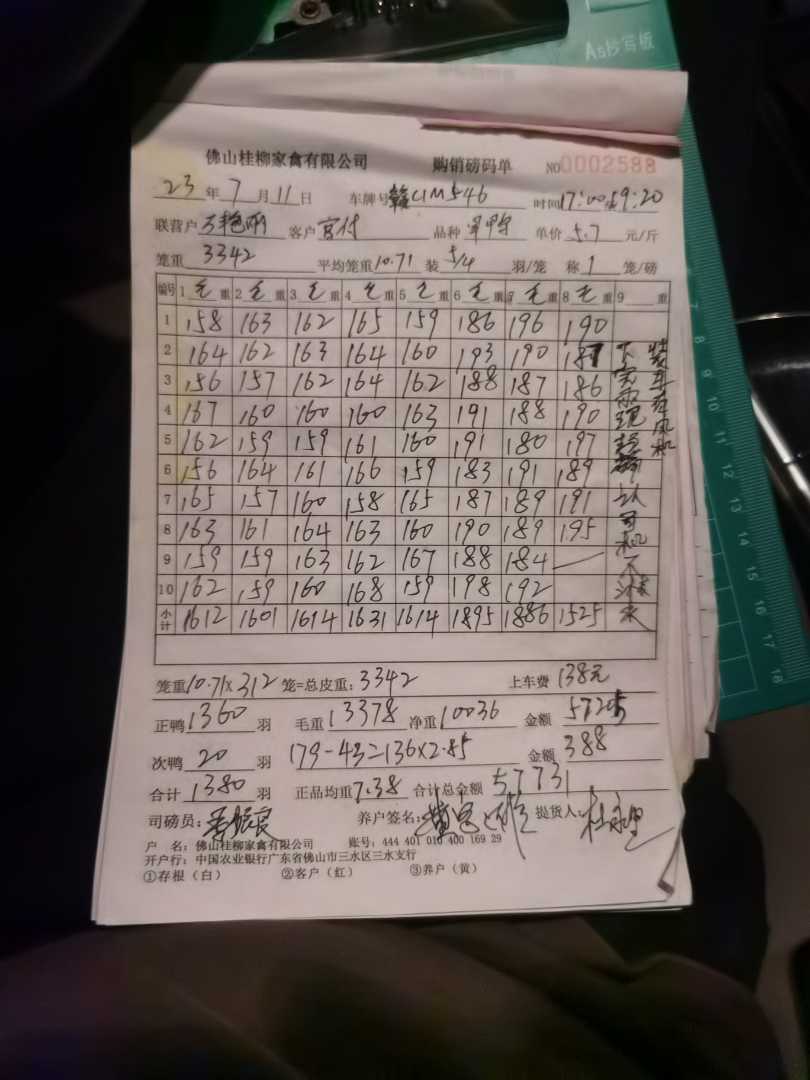 As抄写板
佛山桂柳家禽有限公司 购销磅码单 NO0002588
23年7月11日 车牌号赣C1M546 时间17:00 19:20
联营户 客户 宫付 品种 单价5.7元/斤
笼重3342 平均笼重10.71 装5/4羽/笼 称1笼/磅
编号 1毛重 2毛重 3毛重 4毛重 5毛重 6毛重 7毛重 8毛重 9 重
1 158 163 162 165 159 186 196 190
2 164 162 163 164 160 193 190 187
3 156 157 162 164 162 188 187 186
4 167 160 160 160 163 191 188 190
5 162 159 159 161 160 191 180 197
6 156 164 161 166 159 183 191 189
7 165 157 160 158 165 187 189 191
8 163 161 164 163 160 190 189 195
9 159 159 163 162 167 188 184 —
10 162 159 160 168 159 198 192
小计 1612 1601 1614 1631 1614 1895 1886 1525
装车有风机
笼重10.71×312笼=总皮重:3342 上车费138元
正鸭1360羽 毛重13378 净重10036 金额57205
次鸭20羽 179-43=136×2.85 金额388
合计1380羽 正品均重7.38 合计总金额57731
司磅员: 养户签名: 提货人:
户 名:佛山桂柳家禽有限公司 账号:444 401 010 400 169 29
开户行:中国农业银行广东省佛山市三水区三水支行
①存根(白) ②客户(红) ③养户(黄)
7
8
9
10
11
12
13
14
15
16
17
18